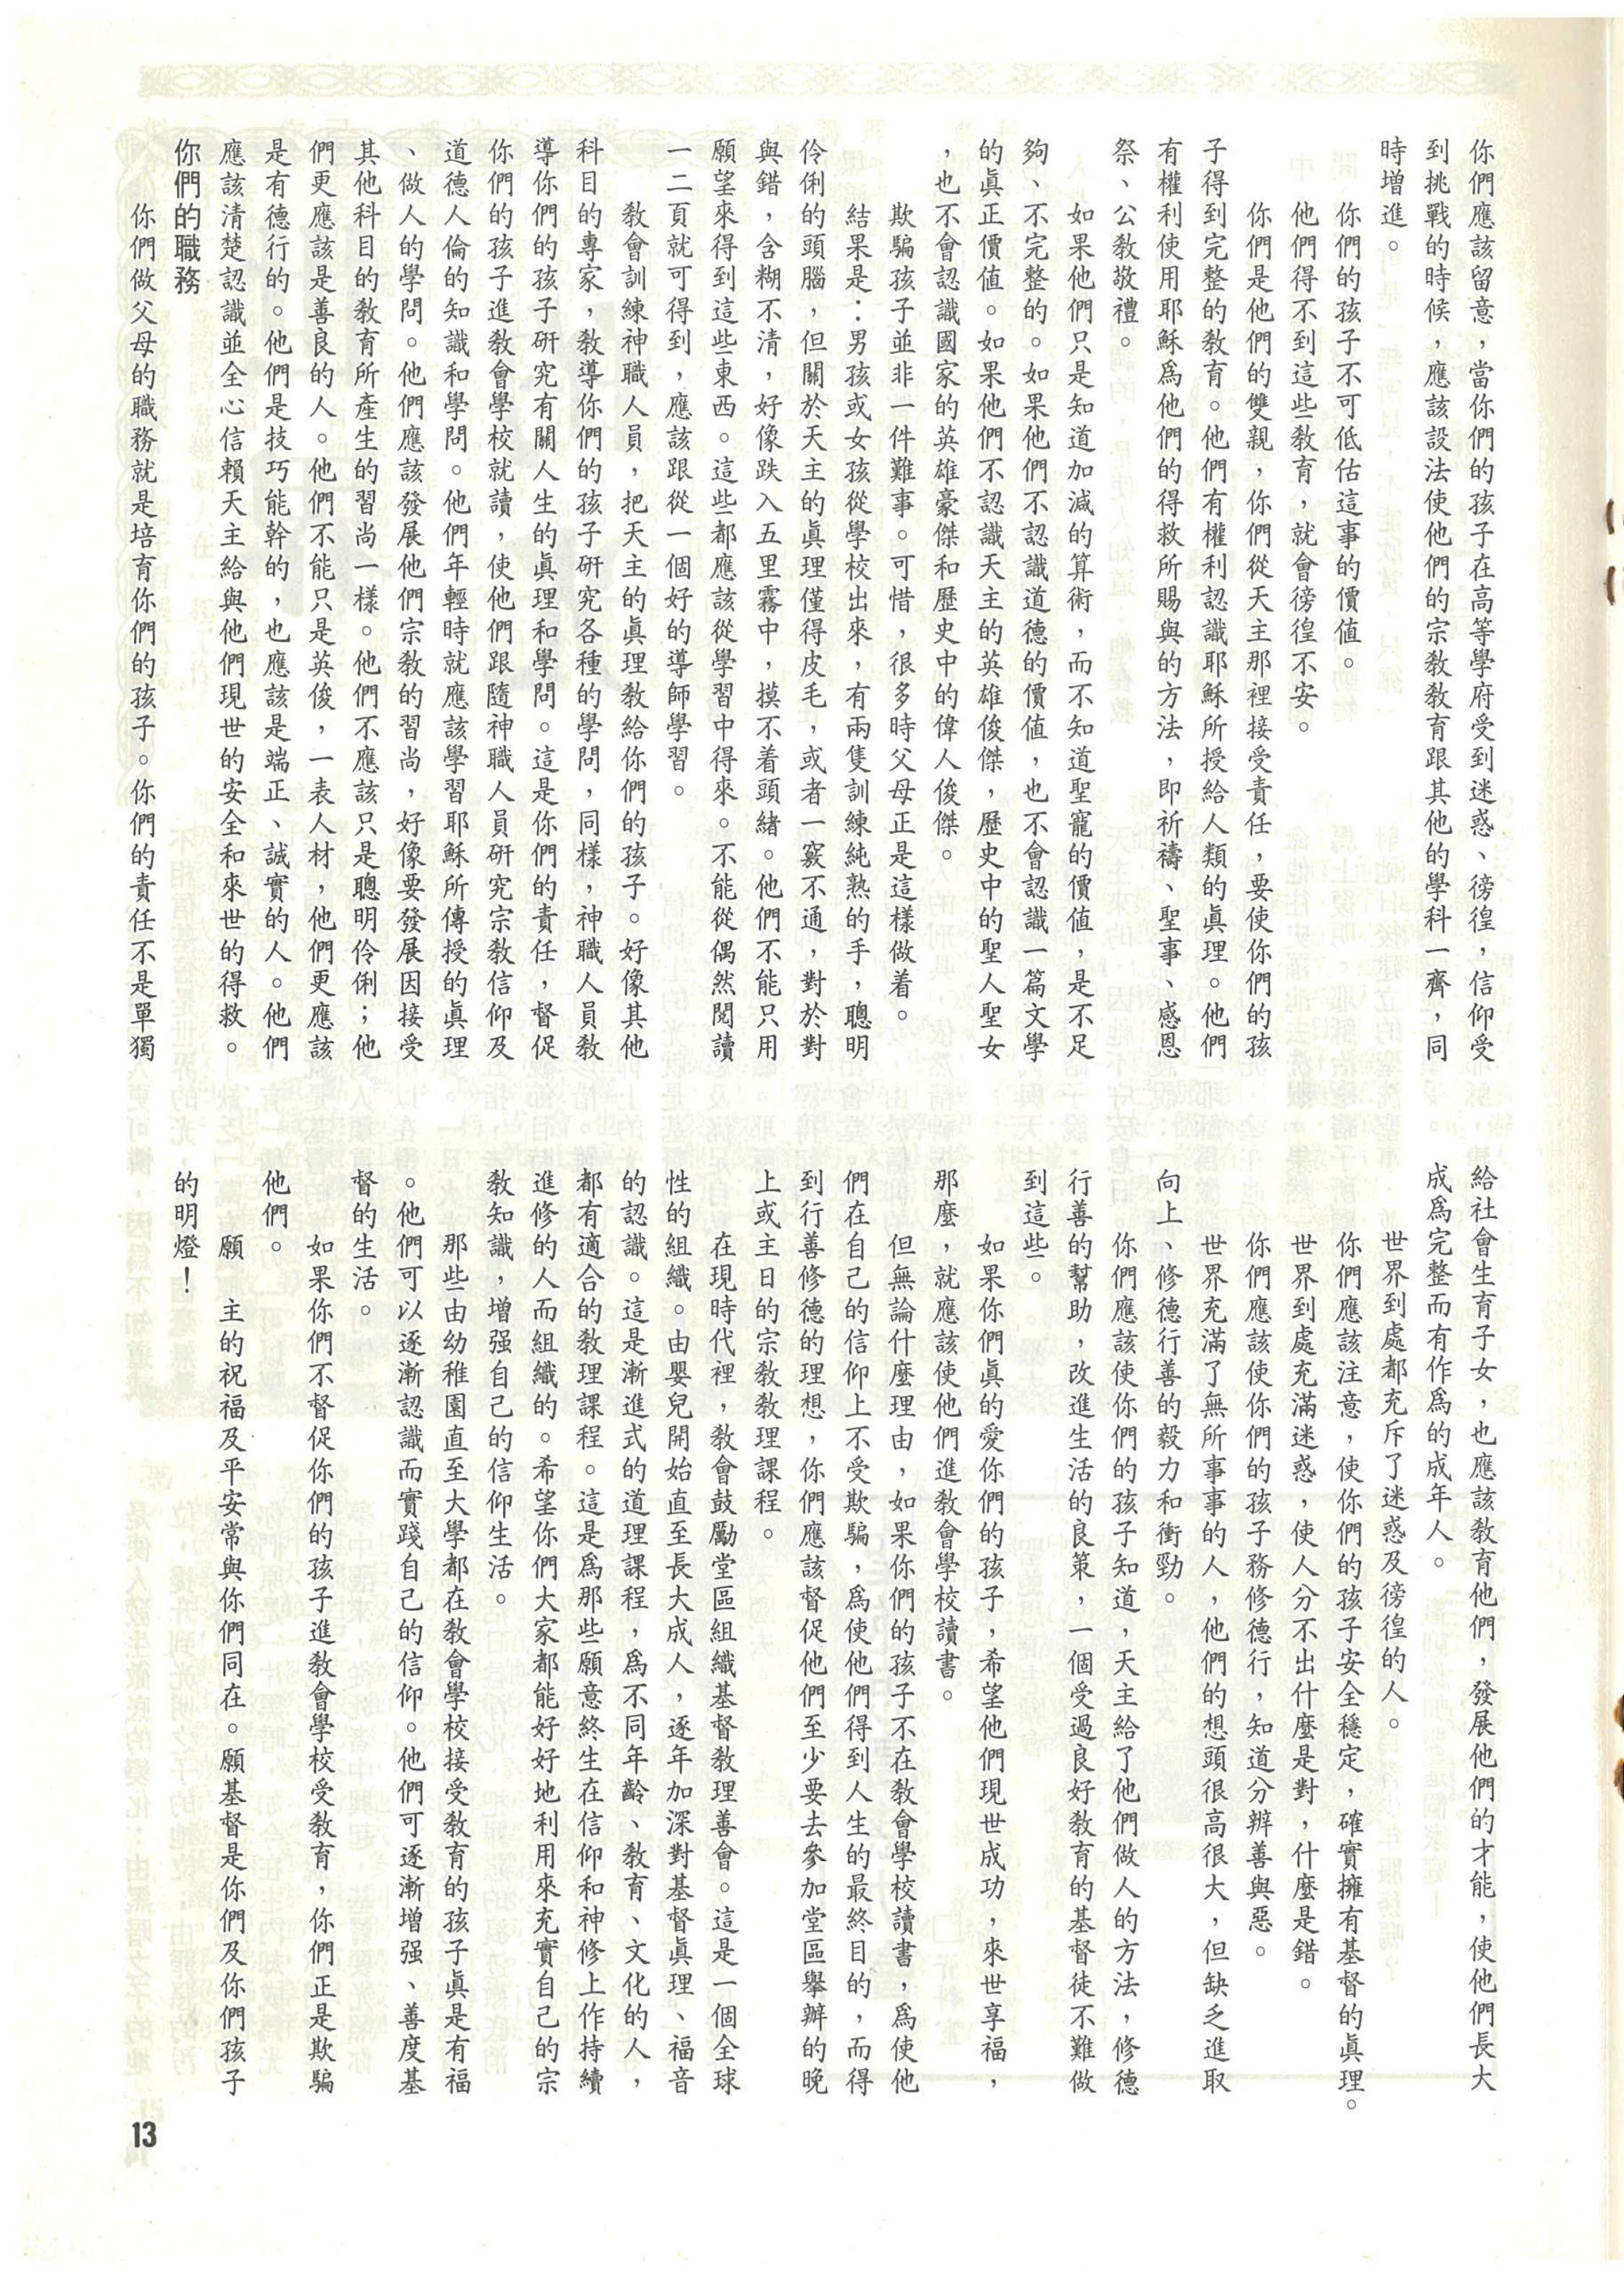 你們應該留意，當你們的孩子在高等學府受到迷惑、徬徨，信仰受
到挑戰的時候，應該設法使他們的宗教教育跟其他的學科一齊，同
時增進。
你們的孩子不可低估這事的價值。
他們得不到這些教育，就會徬徨不安。
你們是他們的雙親，你們從天主那裡接受責任，要使你們的孩
子得到完整的教育。他們有權利認識耶穌所授給人類的眞理。他們
有權利使用耶穌爲他們的得救所賜與的方法，即祈禱、聖事、感恩
祭、公教敬禮。
如果他們只是知道加減的算術，而不知道聖寵的價值，是不足
夠、不完整的。如果他們不認識道德的價值，也不會認識一篇文學
的眞正價值。如果他們不認識天主的英雄俊傑，歷史中的聖人聖女
，也不會認識國家的英雄豪傑和歷史中的偉人俊傑。
欺騙孩子並非一件難事。可惜，很多時父母正是這樣做着。
結果是：男孩或女孩從學校出來，有兩隻訓練純熟的手，聰明
伶俐的頭腦，但關於天主的眞理僅得皮毛，或者一竅不通，對於對
與錯，含糊不清，好像跌入五里霧中，摸不着頭緒。他們不能只用
願望來得到這些東西。這些都應該從學習中得來。不能從偶然閱讀
一二頁就可得到，應該跟從一個好的導師學習。
教會訓練神職人員，把天主的眞理教給你們的孩子。好像其他
科目的專家，教導你們的孩子研究各種的學問，同樣，神職人員教
導你們的孩子研究有關人生的眞理和學問。這是你們的責任，督促
你們的孩子進教會學校就讀，使他們跟隨神職人員研究宗教信仰及
道德人倫的知識和學問。他們年輕時就應該學習耶穌所傳授的眞理
、做人的學問。他們應該發展他們宗教的習尚，好像要發展因接受
其他科目的教育所產生的習尚一樣。他們不應該只是聰明伶俐；他
們更應該是善良的人。他們不能只是英俊，一表人材，他們更應該
是有德行的。他們是技巧能幹的，也應該是端正、誠實的人。他們
應該清楚認識並全心信賴天主給與他們現世的安全和來世的得救。
你們的職務
你們做父母的職務就是培育你們的孩子。你們的責任不是單獨
給社會生育子女，也應該教育他們，發展他們的才能，使他們長大
成爲完整而有作爲的成年人。
世界到處都充斥了迷惑及徬徨的人。
你們應該注意，使你們的孩子安全穩定，確實擁有基督的眞理。
世界到處充滿迷惑，使人分不出什麼是對，什麼是錯。
你們應該使你們的孩子務修德行，知道分辨善與惡。
世界充滿了無所事事的人，他們的想頭很高很大，但缺乏進取
向上、修德行善的毅力和衝勁。
你們應該使你們的孩子知道，天主給了他們做人的方法，修德
行善的幫助，改進生活的良策，一個受過良好教育的基督徒不難做
到這些。
如果你們眞的愛你們的孩子，希望他們現世成功，來世享福，
那麼，就應該使他們進教會學校讀書。
但無論什麼理由，如果你們的孩子不在教會學校讀書，爲使他
們在自己的信仰上不受欺騙，爲使他們得到人生的最終目的，而得
到行善修德的理想，你們應該督促他們至少要去參加堂區舉辦的晚
上或主日的宗教教理課程。
在現時代裡，教會鼓勵堂區組織基督教理善會。這是一個全球
性的組織。由嬰兒開始直至長大成人，逐年加深對基督眞理、福音
的認識。這是漸進式的道理課程，爲不同年齡、教育、文化的人，
都有適合的教理課程。這是爲那些願意終生在信仰和神修上作持續
進修的人而組織的。希望你們大家都能好好地利用來充實自己的宗
教知識，增强自己的信仰生活。
那些由幼稚園直至大學都在教會學校接受教育的孩子眞是有福
。他們可以逐漸認識而實踐自己的信仰。他們可逐漸增强、善度基
督的生活。
如果你們不督促你們的孩子進教會學校受教育，你們正是欺騙
他們。
願　主的祝福及平安常與你們同在。願基督是你們及你們孩子
的明燈！
13